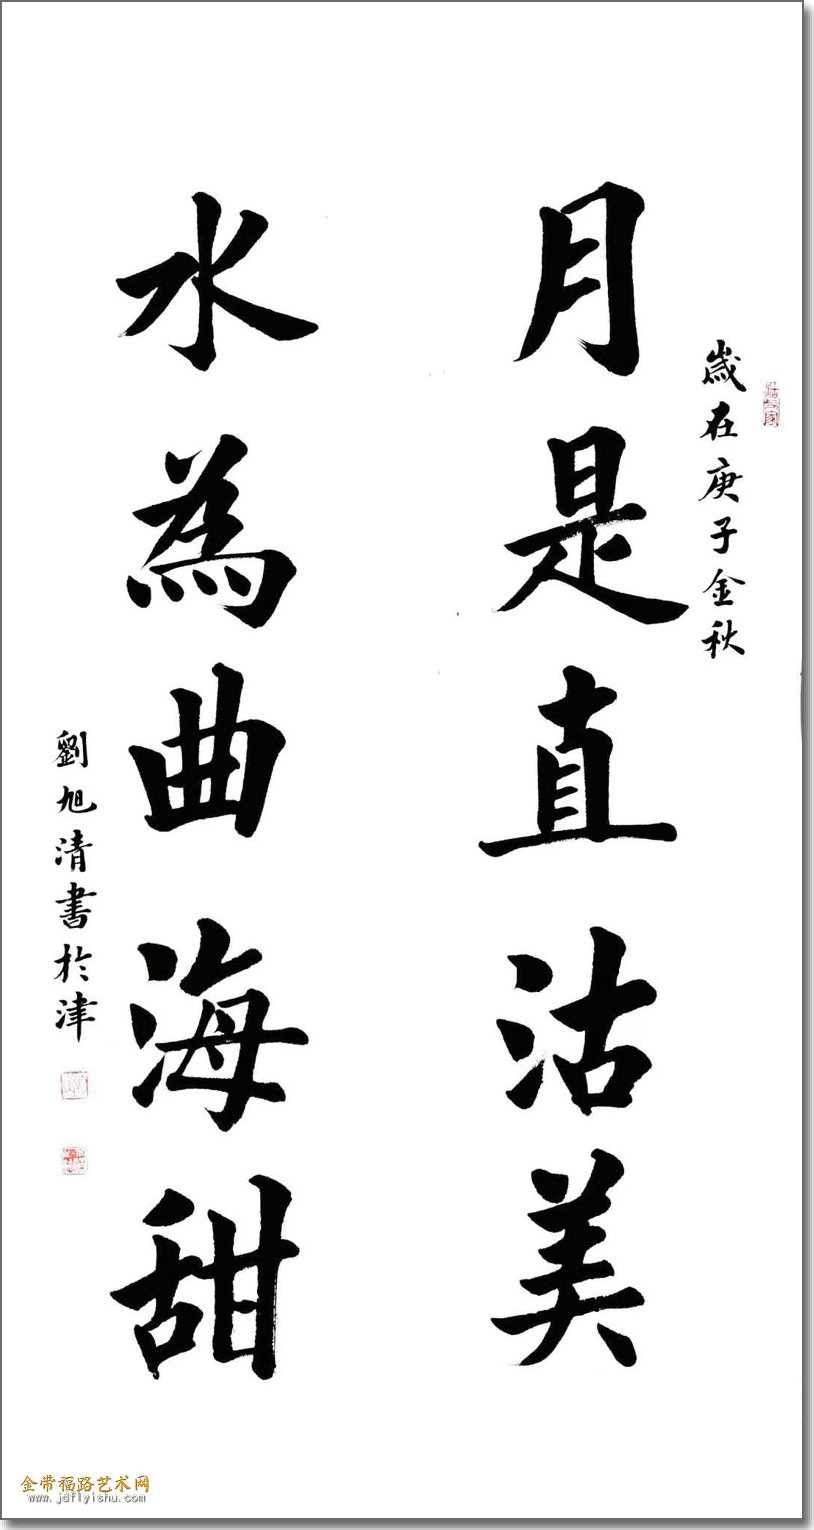 歲在庚子金秋
月是直沽美
水為曲海甜
劉旭清書於津
金带福路艺术网
www.jdflyishu.com